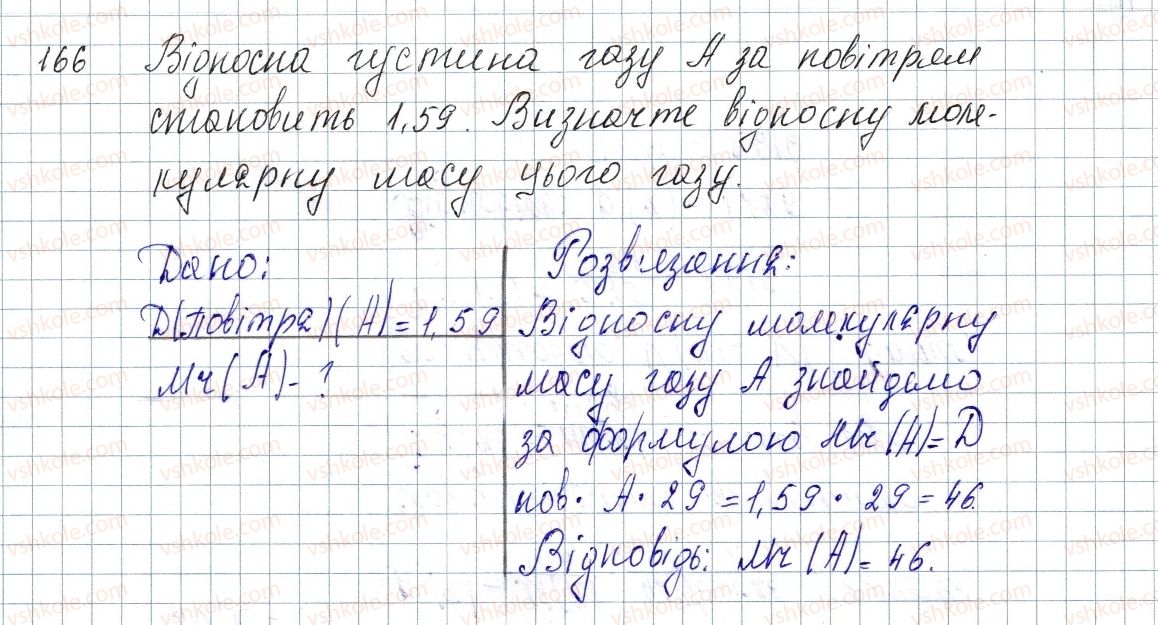 166 Відносна густина газу А за повітрям
становить 1,59. Визначте відносну моле-
кулярну масу цього газу.
Дано:
D(повітря)(А)=1,59
Мч(А)-?
Розв'язання:
Відносну молекулярну
масу газу А знайдемо
за формулою Мч(А)=D
пов· А· 29 =1,59 · 29 = 46.
Відповідь: Мч (А)= 46.